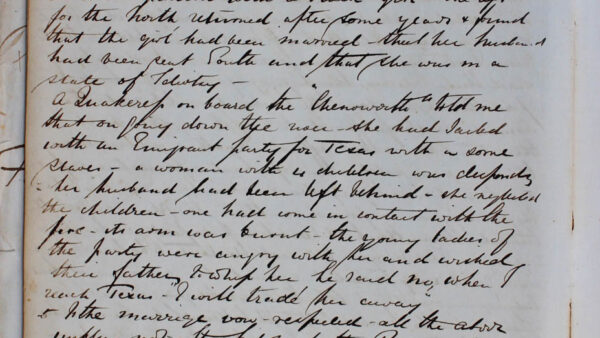 for the north returned after some years & found
that the girl had been married - that her husband
had been sent South and that she was in a
state of
A Quakeress on board the "Chenoworth" told me
that on going down the river - she had sailed
with an Emigrant party for Texas with some
slaves - a woman with children was
- her husband had been left behind - she neglected
the children - one had come in contact with the
fire - its arm was burnt - the young ladies of
the party were angry with her and wished
their father to whip her he said no, when I
reach Texas - "I will trade her away"
Is the marriage vow - respected - all the above